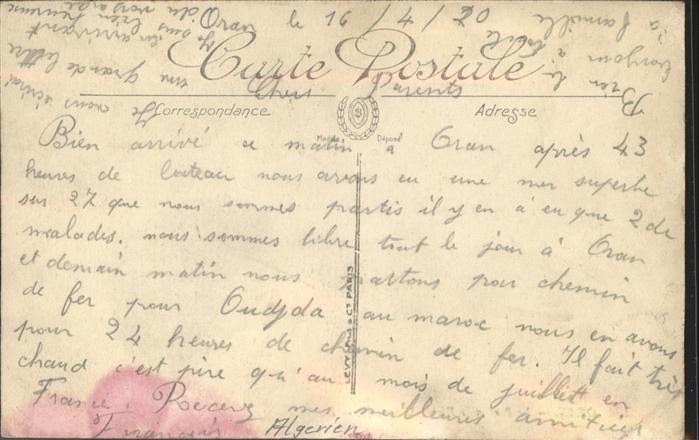 Oran le 16/4/20
Carte Postale
Chers Parents
Correspondance
Adresse
Modèle Déposé
Bien arrivé ce matin a Oran après 43
heures de bateau nous avons eu une mer superbe
sur 27 que nous sommes partis il y en à eu que 2 de
malades. nous sommes libre tout le jour à Oran
et demain matin nous partons pour chemin
de fer pour Oudjda au maroc nous en avons
pour 24 heures de chemin de fer. Il fait très
chaud c'est pire qu'au mois de juillet en
France. Recevez mes meilleures amitiés
François
Algerien
LEVY FILS & Cie PARIS
Je vous écrirai
une grande lettre
en arrivant
Je suis bien
du voyage
Bien le
bonjour à toute
la famille